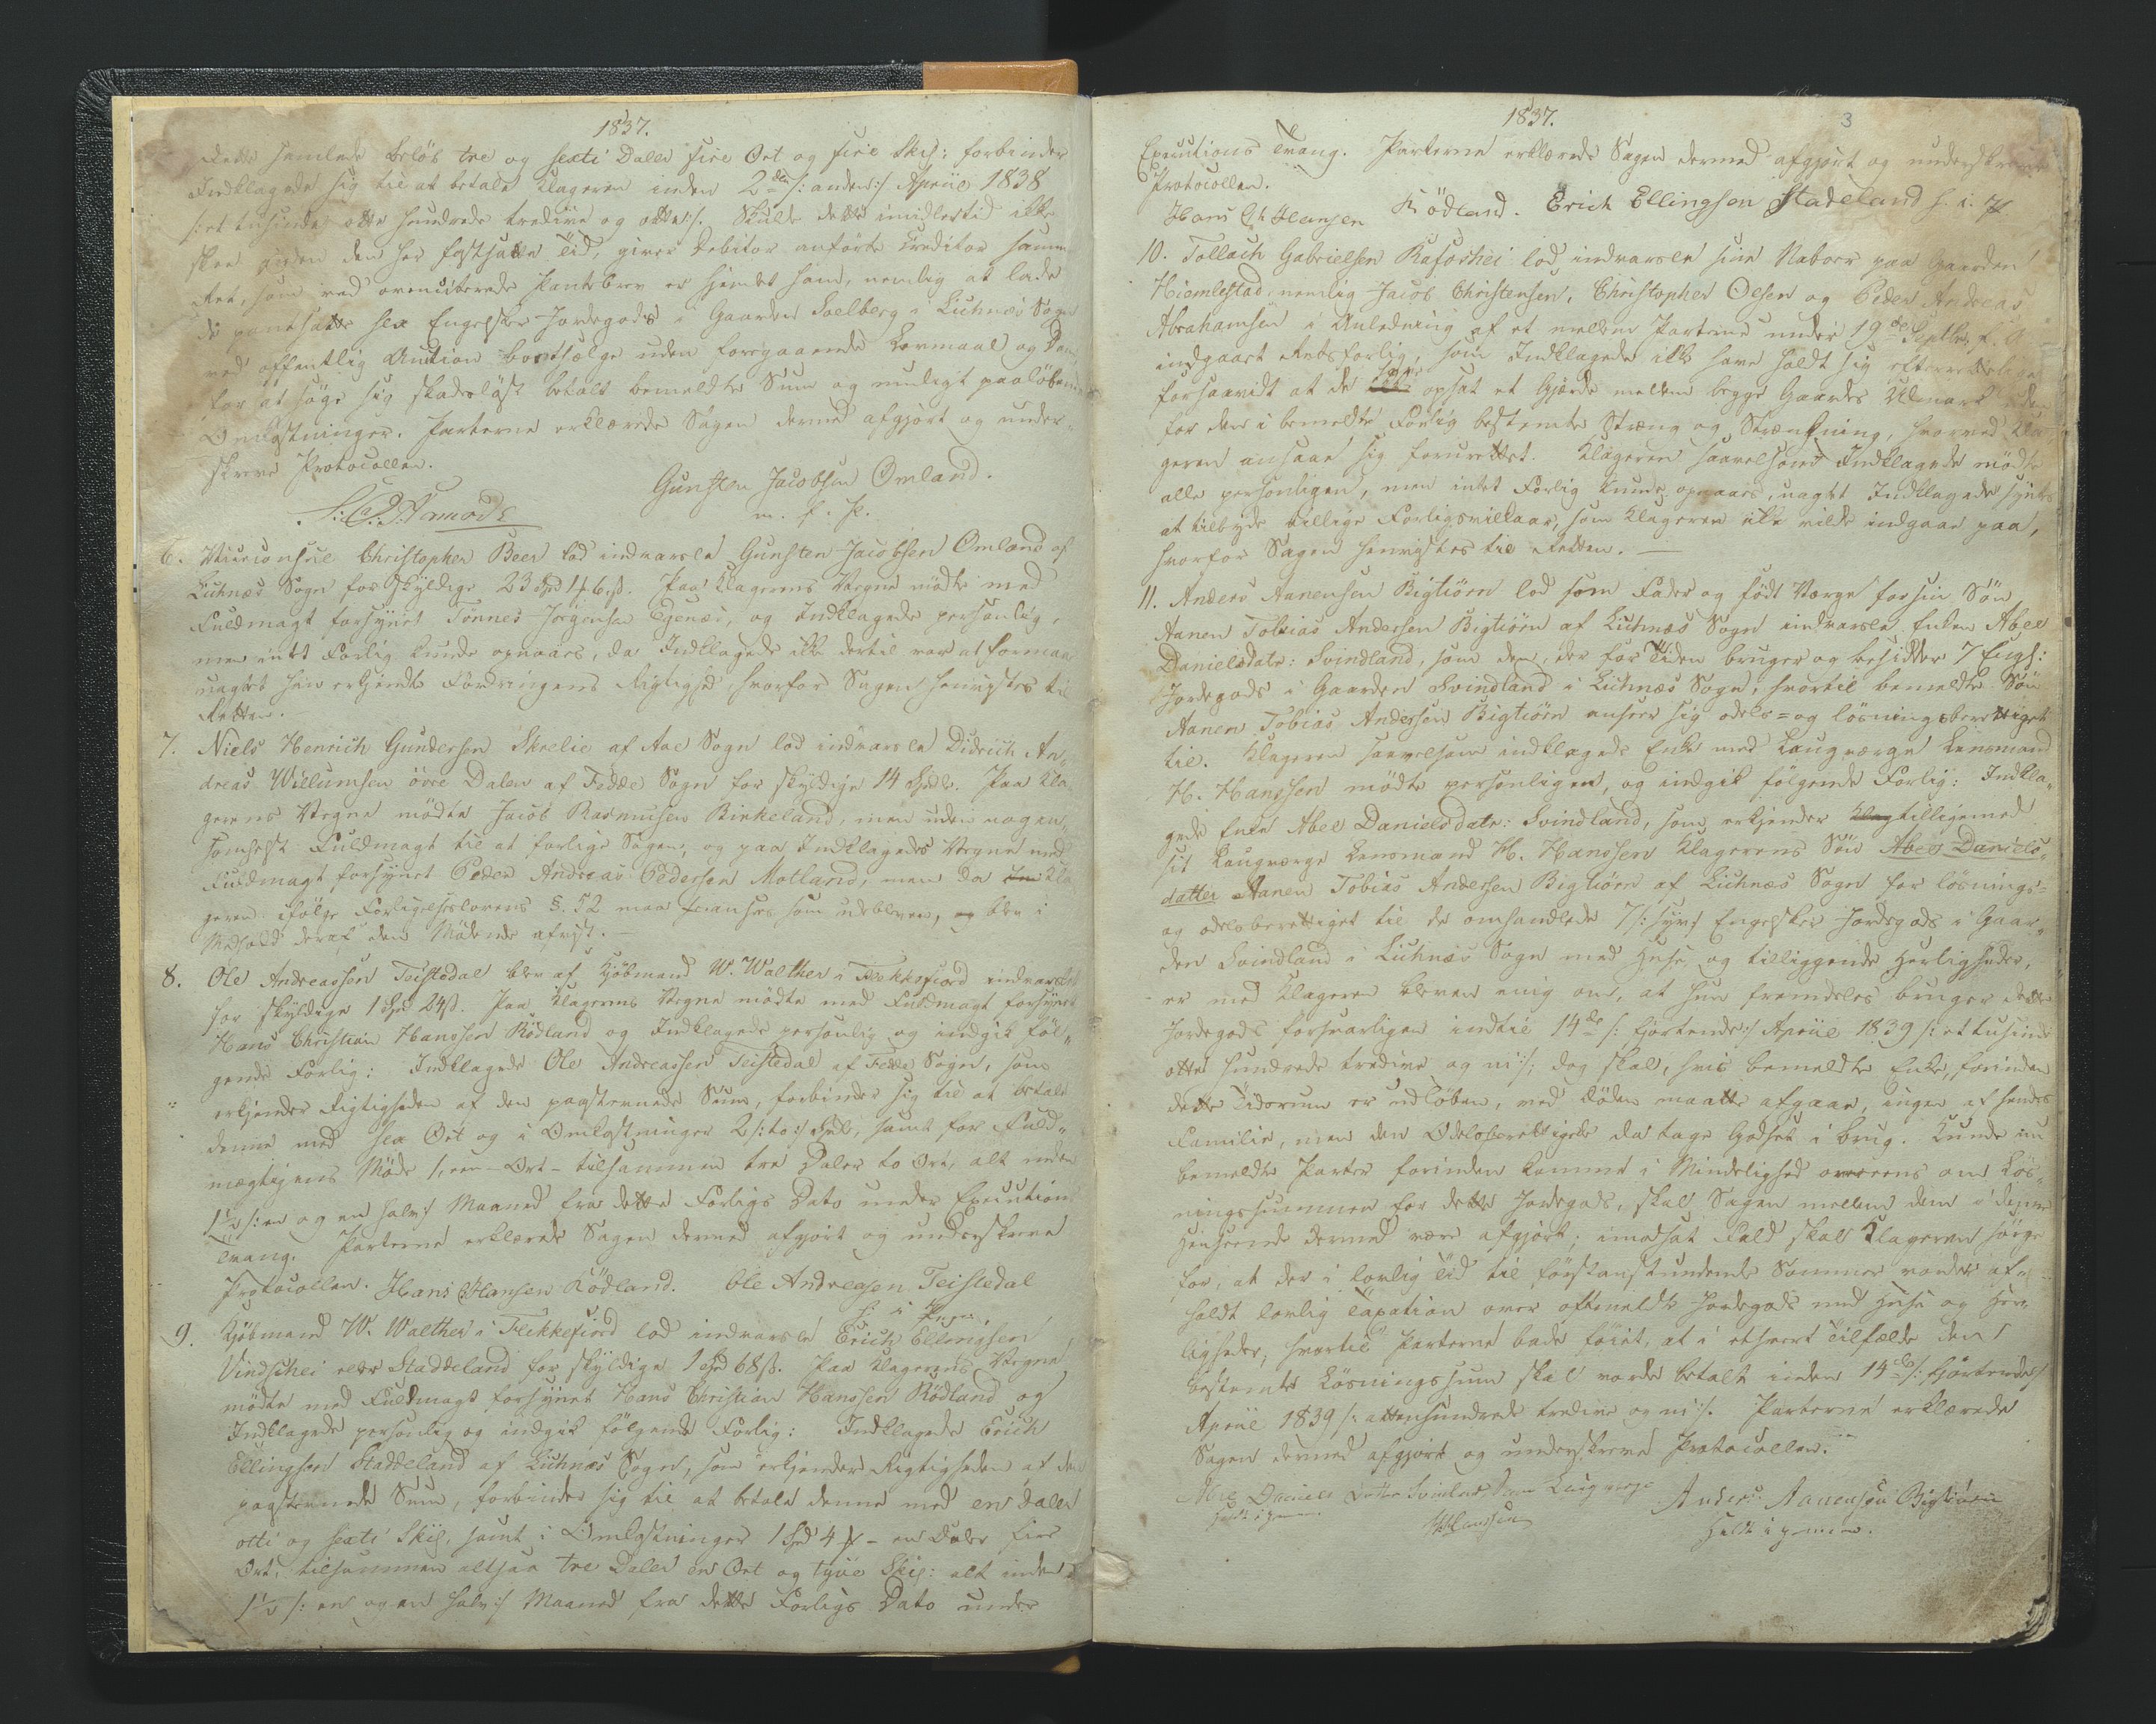 1837.
dette samlede Beløb tre og sexti Daler fire Ort og fire Skil: forbinder
Indklagede sig til at betale Klageren inden 2den /: anden :/ Apriil 1838
/: et tusinde otte hundrede tredive og otte :/. Skulde dette imidlertid ikke
skee inden den her fastsatte Tid, giver Debitor anførte Kreditor samme
Ret, som ved ovenciterede Pantebrev er hjemlet ham, nemlig at lade
de pantsatte sex Engelsker Jordegods i Gaarden Soelberg i Liknæs Sogn
ved offentlig Auction bortsælge uden foregaaende Lovmaal og Dom
for at søge sig skadesløst betalt bemeldte Sum og muligt paaløbende
Omkostninger. Parterne erklærede Sagen dermed afgjort og under-
skrev Protocollen.
Gunsten Jacobsen Omland.
m. f. P.
6. Viceconsul Christopher Beer lod indvarsle Gunsten Jacobsen Omland af
Liknæs Sogn for skyldige 23 Spd 1 ort 6 ß. Paa Klagerens Vegne mødte med
Fuldmagt forsynet Tönnes Jörgensen Egenæs, og Indklagede personlig,
men intet Forlig kunde opnaaes, da Indklagede ikke dertil var at formaa
uagtet han erkjendte Fordringens Rigtighed hvorfor Sagen henvistes til
Retten.
7. Niels Henrich Gundersen Skrelie af Aae Sogn lod indvarsle Didrich An-
dreas Willumsen övre Dalen af Fedde Sogn for skyldige 14 Spdlr. Paa Kla-
gerens Vegne mödte Jacob Rasmusen Birkeland, men uden nogen-
somhelst Fuldmagt til at forlige Sagen, og paa Indklagedes Vegne med
Fuldmagt forsynet Peder Andreas Pedersen Motland, men da Kla-
geren ifølge Forligelseslovens §. 52 maa ansees som udebleven, blev i
Medhold deraf den Mødende afvist.
8. Ole Andreassen Teistedal blev af Kjöbmand W. Walther i Flekkefjord indvarslet
for skyldige 1 Spd 24 ß. Paa Klagerens Vegne mødte med Fuldmagt forsynet
Hans Christian Hanssen Rödland og Indklagede personlig og indgik föl-
gende Forlig: Indklagede Ole Andreassen Teistedal af Fedde Sogn, som
erkjender Rigtigheden af den paastevnede Sum, forbinder sig til at betale
denne med sex Ort og i Omkostninger 2 /: to :/ Spdlr, samt for Fuld-
mægtigens Møde 1, een - Ort - tilsammen tre Daler to Ort, alt inden
1½ /: en og en halv :/ Maaned fra dette Forligs Dato under Execution
Tvang. Parterne erklærede Sagen dermed afgjort og underskreve
Protocollen. Hans C Hansen Rödland. Ole Andreasen Teistedal
h: i Penn.
9. Kjöbmand W. Walther i Flekkefjord lod indvarsle Erich Ellingsen
Vindsthei eller Staddeland for skyldige 1 Spd 68 ß. Paa Klagerens Vegne
mödte med Fuldmagt forsynet Hans Christian Hanssen Rödland og
Indklagede personlig og indgik fölgende Forlig: Indklagede Erich
Ellingsen Staddeland af Liknæs Sogn, som erkjender Rigtigheden af den
paastevnede Sum, forbinder sig til at betale denne med en Daler
otte og sexti Skil, samt i Omkostninger 1 Spd 4 ort - en Daler fire
Ort, tilsammen altsaa tre Daler en Ort og tyve Skil: alt inden
1½ /: en og en halv :/ Maaned fra dette Forligs Dato under
1837.
3
Executions Tvang. Parterne erklærede Sagen dermed afgjort og underskreve
Protocollen.
Hans Ch Hansen Rödland. Erich Ellingsen Stadeland h. i. P
10. Tollach Gabrielsen Rafoshei lod indvarsle sine Naboer paa Gaarden
Hiemlestad, nemlig Jacob Christensen, Christopher Olsen og Peder Andreas
Abrahamsen i Anledning af et mellem Parterne under 19de Septbr. f. A
indgaaet Retsforlig, som Indklagede ikke have holdt sig efterrettelige
forsaavidt at de have opsat et Gjerde mellem begge Gaardes Udmark uden
for den i bemeldte Forlig bestemte Stræng og Strækning, hvorved Kla-
geren ansaae sig forurettet. Klageren saavelsom Indklagede mödte
alle personligen, men intet Forlig kunde opnaaes, uagtet Indklagede syntes
at tilbyde billige Forligsvilkaar, som Klageren ikke vilde indgaae paa,
hvorfor Sagen henvistes til Retten.
11. Anders Aanensen Bigtiörn lod som Fader og født Værge for sin Sön
Aanen Tobias Andersen Bigtiörn af Liknæs Sogn indvarsle Enken Abel
Danielsdatr: Svindland, som den, der for Tiden bruger og besidder 7 Engl:
Jordegods i Gaarden Svindland i Liknæs Sogn, hvortil bemeldte Sön
Aanen Tobias Andersen Bigtiörn anseer sig odels- og løsningsberettiget
til. Klageren saavelsom indklagede Enke med Laugværge Lensmand
H. Hanssen mødte personligen, og indgik følgende Forlig: Indkla-
gede Enke Abel Danielsdatr: Svindland, som erkjender tilligemed
sit Laugværge Lensmand H. Hanssen Klagerens Sön Abel Daniels-
datter Aanen Tobias Andersen Bigtiörn af Liknæs Sogn for løsnings-
og odelsberettiget til de omhandlede 7 /: syv :/ Engelsker Jordegods i Gaar-
den Svindland i Liknæs Sogn med Huse og tilliggende Herligheder,
er med Klageren bleven enig om, at hun fremdeles bruger dette
Jordegods forsvarligen indtil 14de /: fjortende :/ Apriil 1839 /: et tusinde
otte hundrede tredive og ni :/; dog skal, hvis bemeldte Enke, forinden
dette Tidsrum er udløben, ved Døden maatte afgaae, ingen af hendes
Familie, men den Odelsberettigede da tage Godset i Brug. Kunde nu
bemeldte Parter forinden komme i Mindelighed overeens om Løs-
ningssummen for dette Jordegods, skal Sagen mellem dem i denne
Henseende dermed være afgjort; imodsat Fald skal Klageren sørge
for, at der i lovlig Tid til førstanstundende Sommer vorder af-
holdt lovlig Taxation over oftmeldte Jordegods med Huse og Her-
ligheder, hvortil Parterne bade føiet, at i ethvert Tilfælde den
bestemte Løsningssum skal vorde betalt inden 14de /: fjortende :/
Apriil 1839 /: attenhundrede tredive og ni :/. Parterne erklærede
Sagen dermed afgjort og underskreve Protocollen.
Abel Daniels datter Svindland Som Laugværge Anders Aanensen Bigtiörn
holdt i Pennen. HHanssen holdt i Pennen.